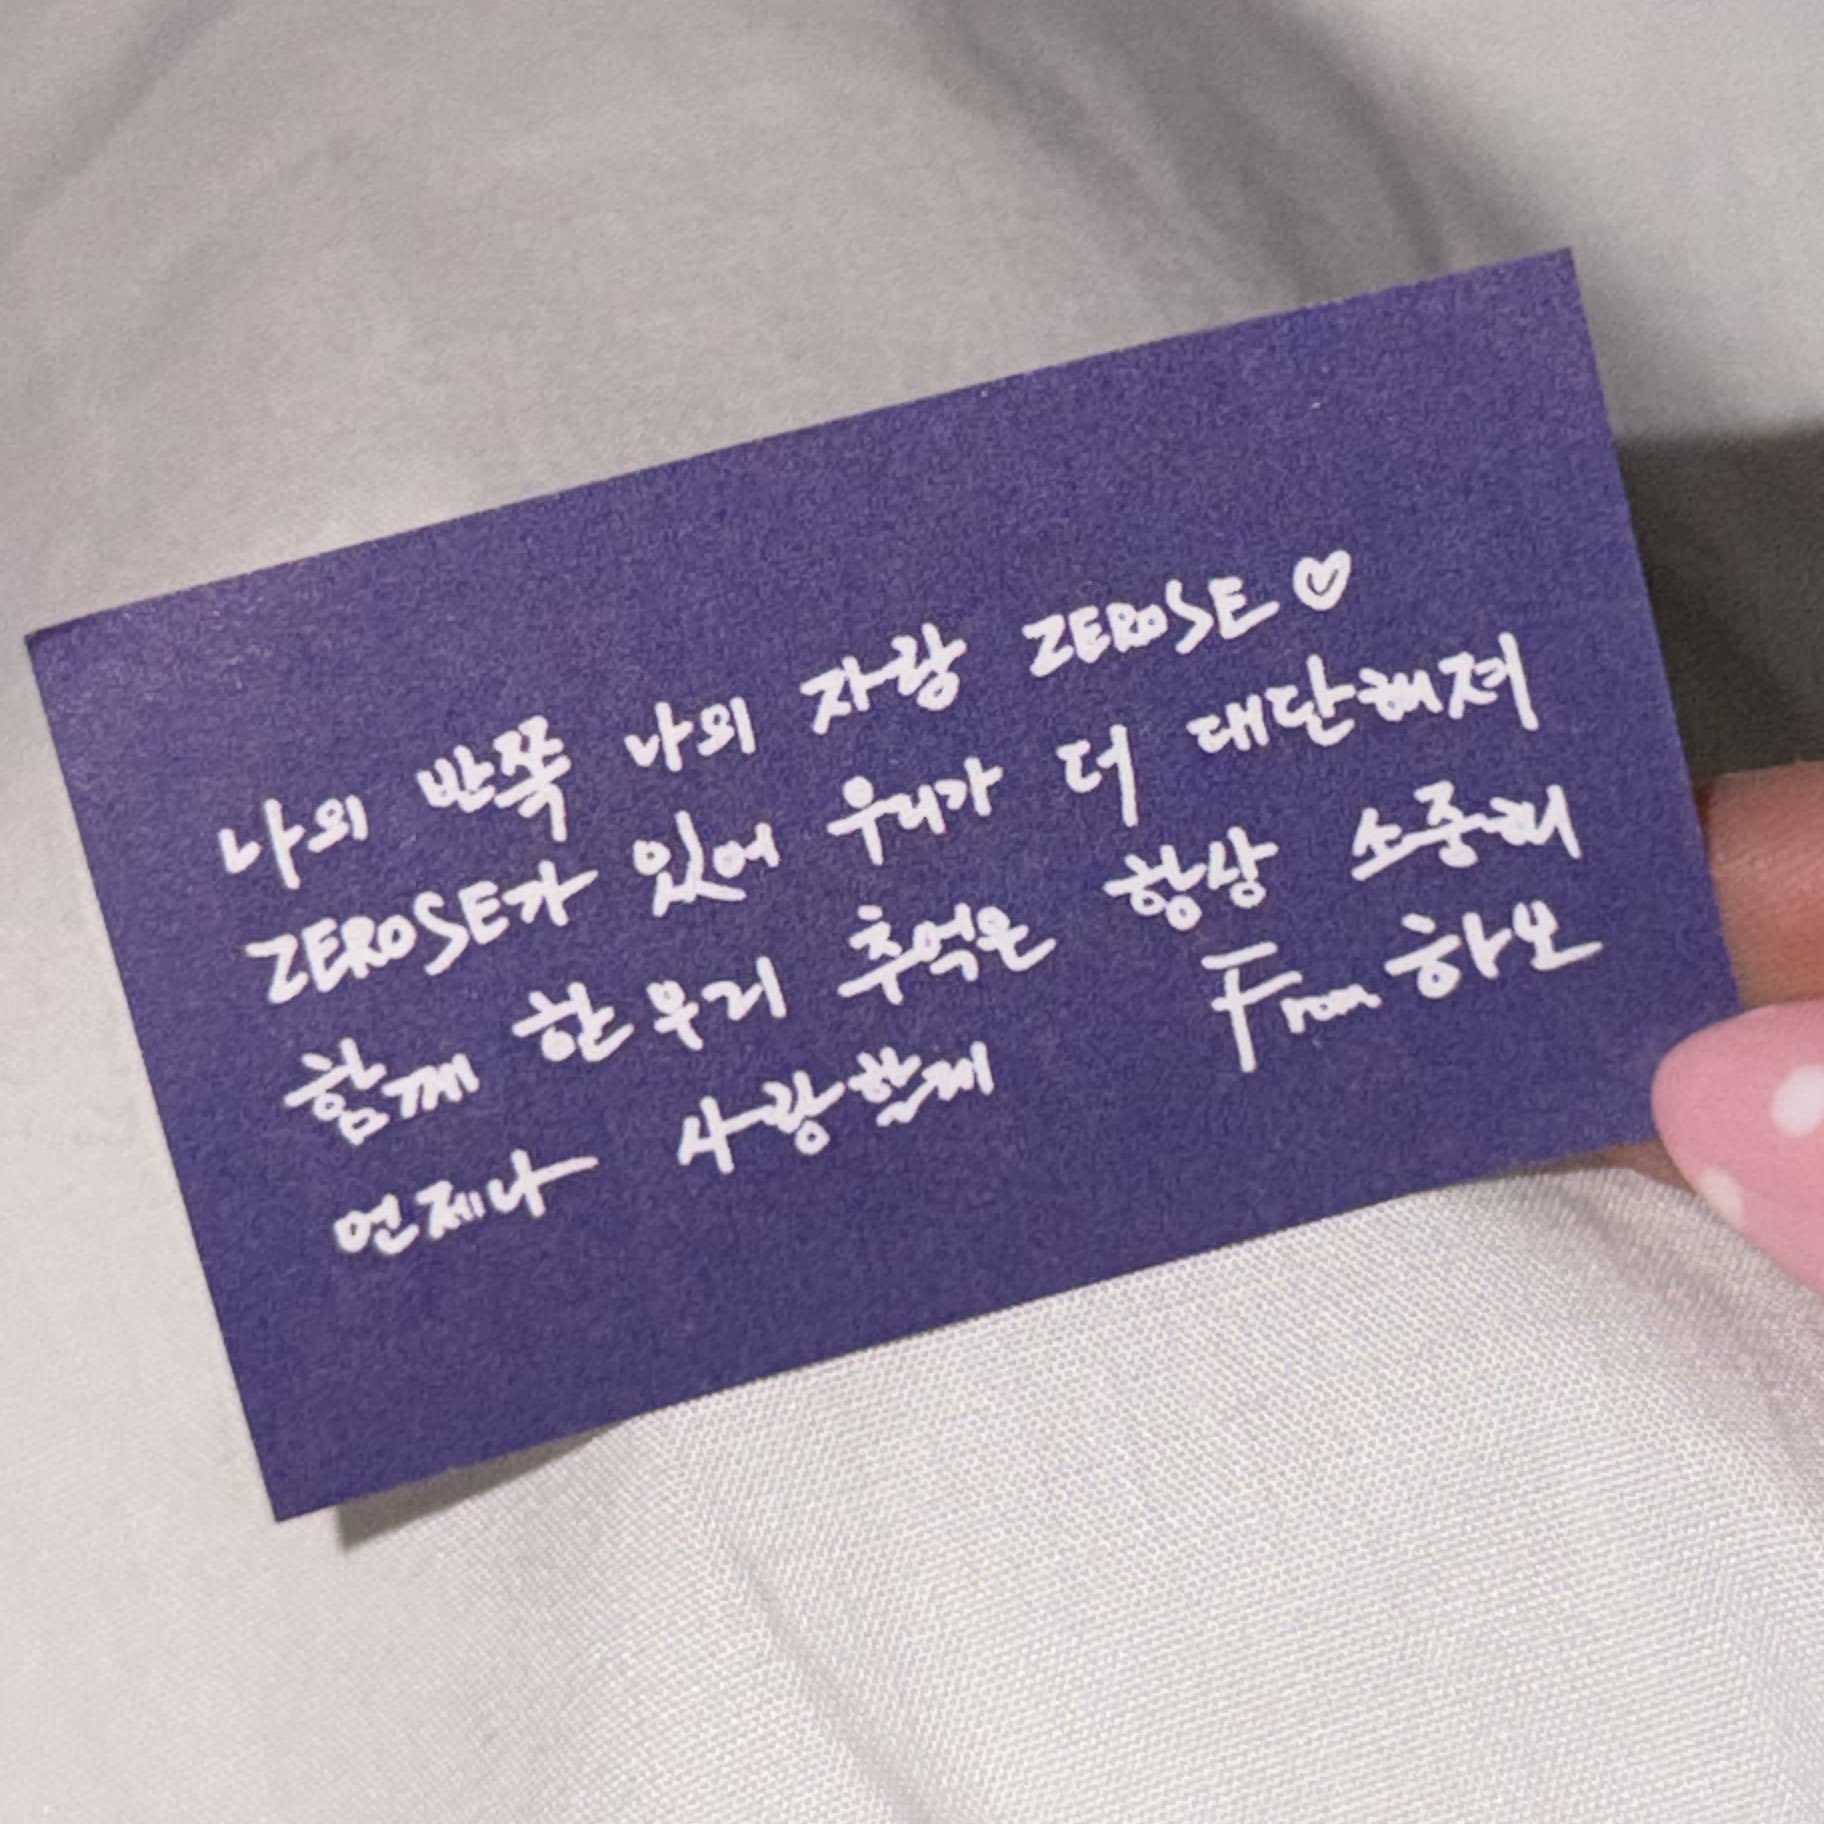 나의 반쪽 나의 자랑 ZEROSE♡
ZEROSE가 있어 우리가 더 대단해져
함께 한 우리 추억은 항상 소중해
언제나 사랑할게 From 하오